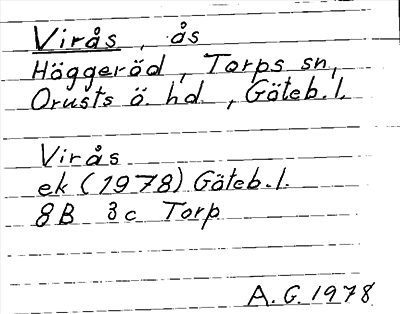 Virås, ås
Häggeröd, Torps sn,
Orusts ö. hd., Göteb. l.
Virås
ek (1978) Göteb. l.
8B 3c Torp
A.G. 1978